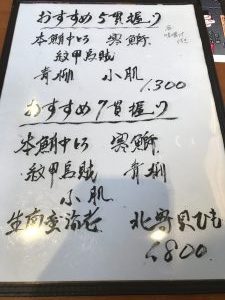 おすすめ5貫握り
本鮪中とろ 寒鰤
紋甲烏賊
青柳 小肌
1.300
おすすめ7貫握り
本鮪中とろ 寒鰤
紋甲烏賊 青柳
小肌
生南蛮海老 北寄貝ひも
1.800